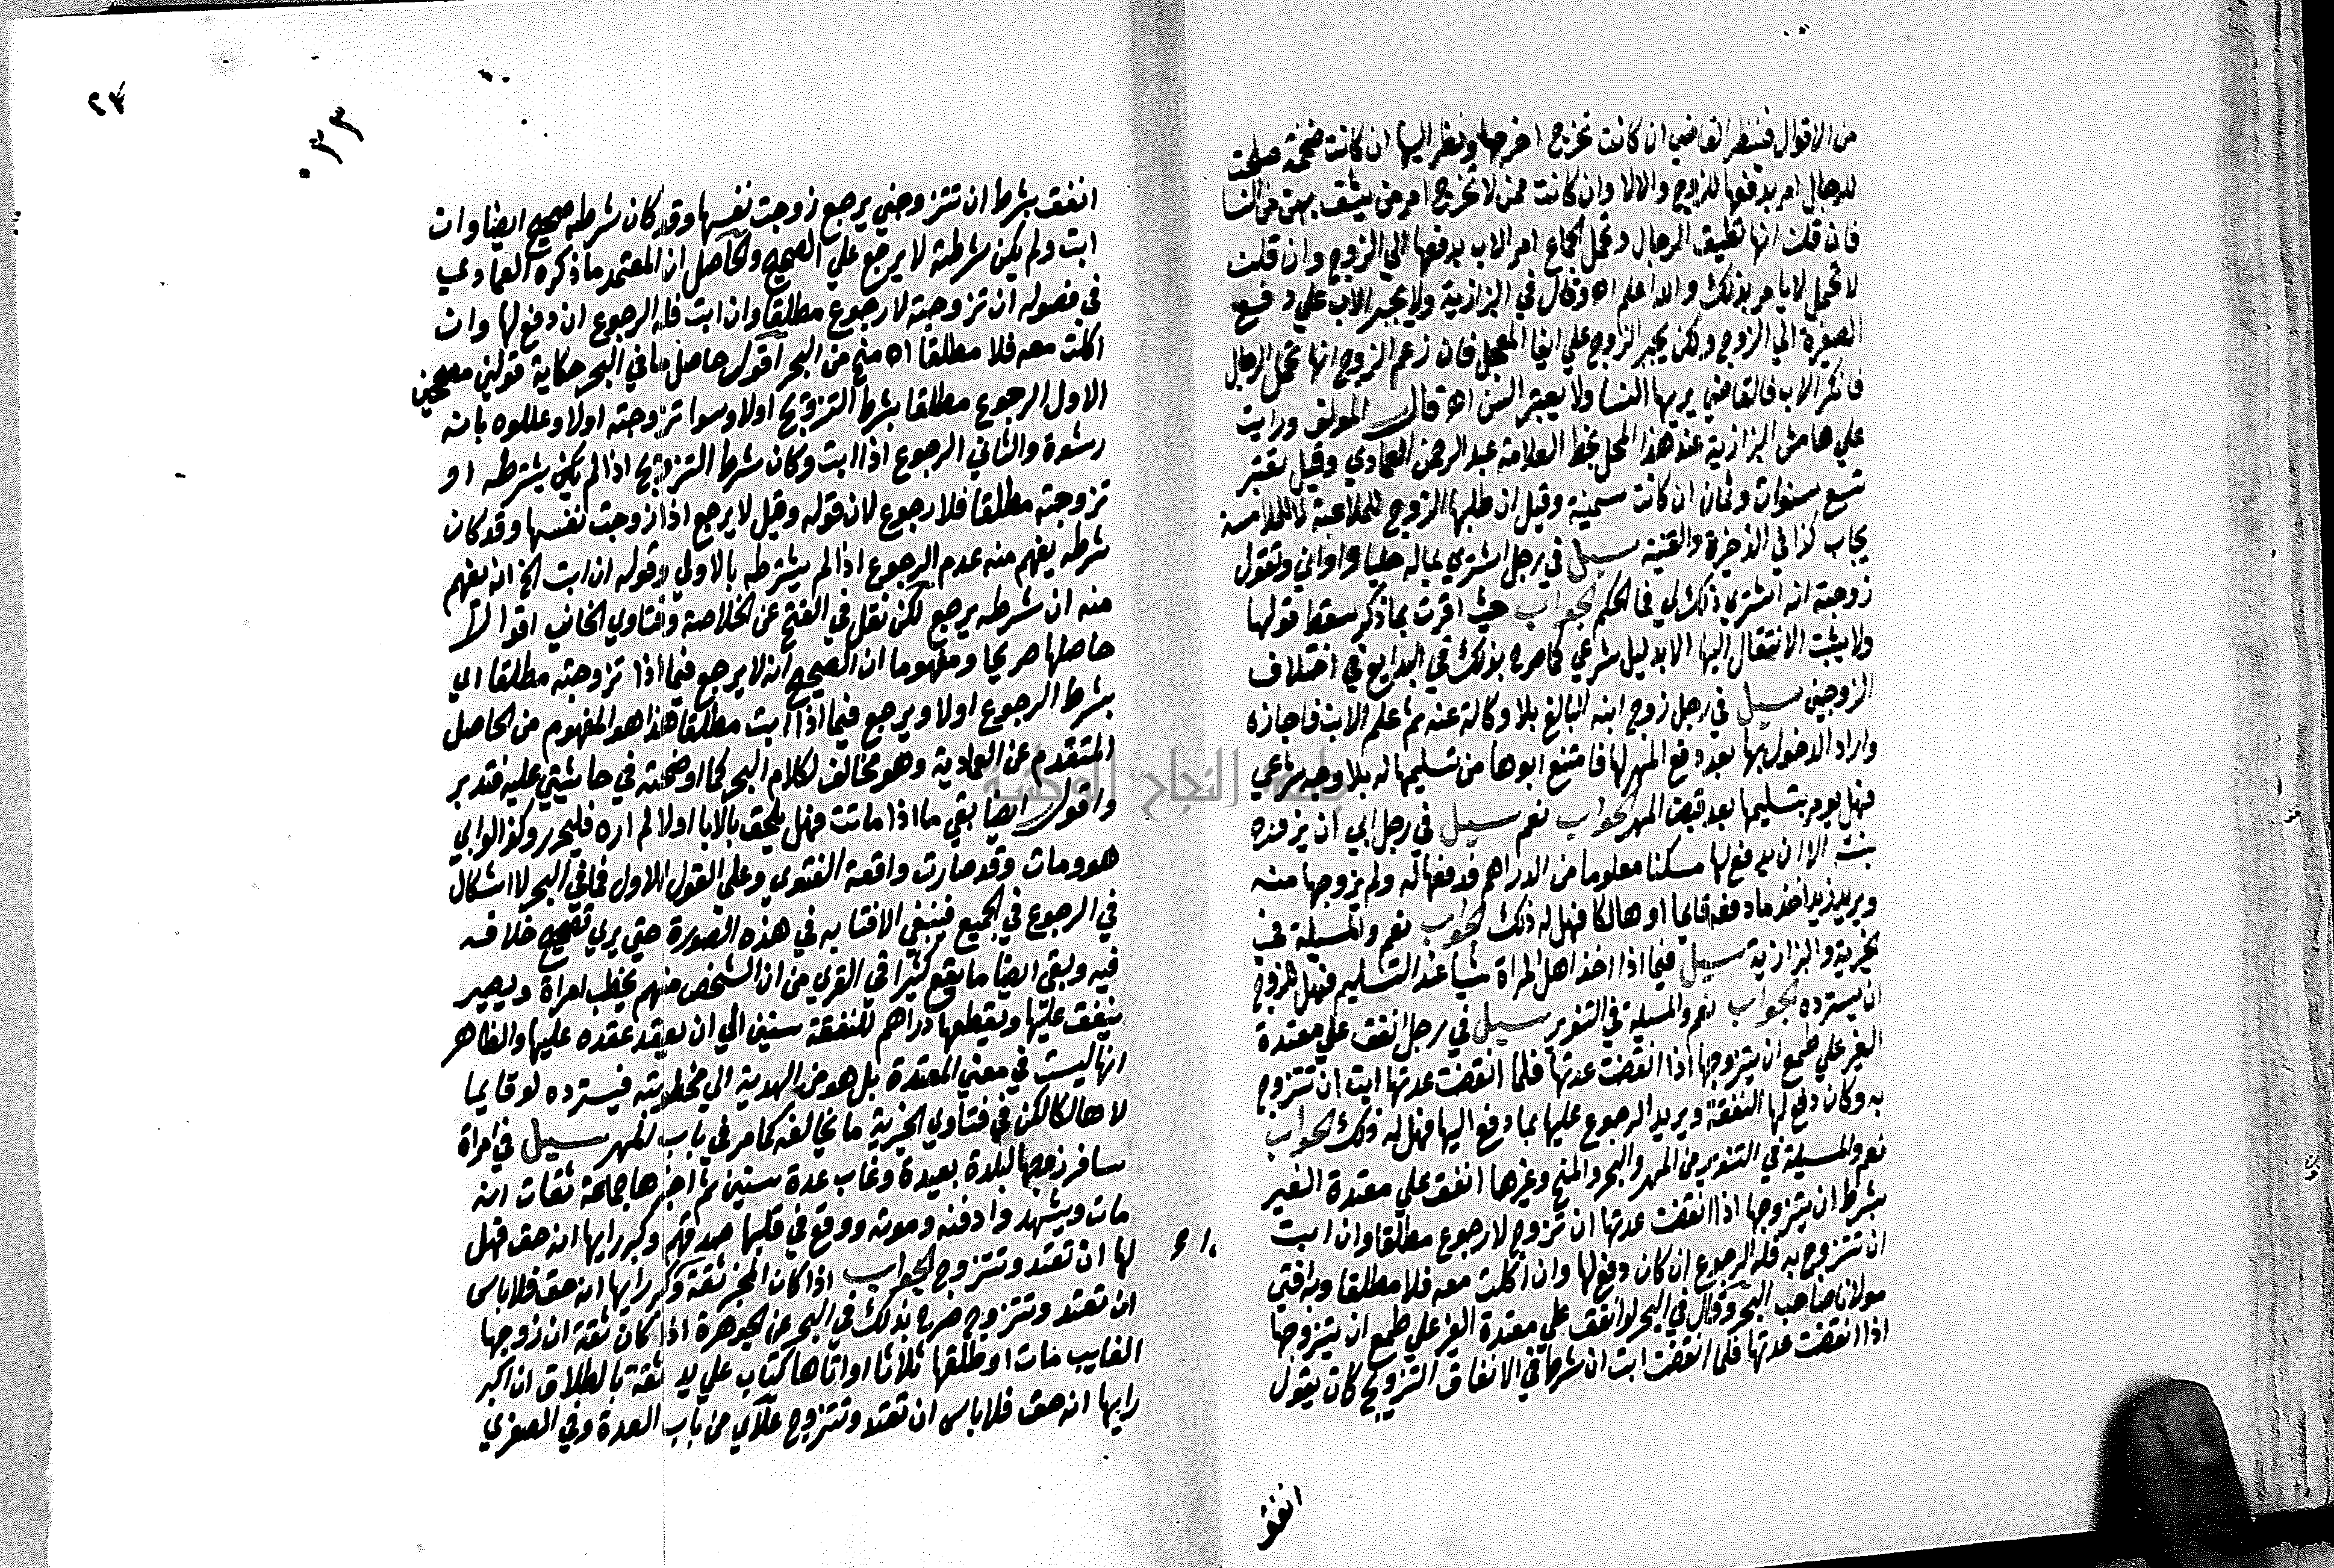 من الاقوال فينظر القاضي ان كانت تخرج اخرجها ونظر اليها ان كانت ضخمة صلحت
للرجال امر بدفعها للزوج والا لا وان كانت ممن لا تخرج امر من يثق بهن من النسا
فان قلن انها تطيق الرجال وتحمل الجماع امر الاب بدفعها الي الزوج وان قلن
لا تحمل لا يامر بذلك والله اعلم اه وقال في البزازية ولا يجبر الاب علي دفع
الصغيرة الي الزوج ولكن يجبر الزوج علي ايفا المعجل فان زعم الزوج انها تحمل الرجال
فانكر الاب فالقاضي يريها النسا ولا يعتبر السن اه قال المولف ورايت
علي هامش البزازية عند هذا المحل بخط العلامة عبد الرحمن العمادي وقيل يعتبر
تسع سنوات وثمان ان كانت سمينة وقيل ان طلبها الزوج للملاعبة لا للملامسة
يجاب كذا في الذخيرة والقنية سيل في رجل اشتري بماله حليا واواني وتقول
زوجته انه اشتري ذلك لي فما الحكم الجواب حيث اقرت بما ذكر سقط قولها
ولا يثبت الانتقال اليها الا بدليل شرعي كما صرح بذلك في البدايع في اختلاف
الزوجين سيل في رجل زوج ابنه البالغ بلا وكالة عنه ثم علم الابن فاجازه
واراد الدخول بها بعد دفع المهر لها فامتنع ابوها من تسليمها له بلا وجه شرعي
فهل يومر بتسليمها بعد قبض المهر الجواب نعم سيل في رجل ابي ان يزف زيد
بنت الا ان يدفع لها مسكنا معلوما من الدراهم فدفعها له ولم يزوجها منه
ويريد زيد اخذ ما دفعه قايما او هالكا فهل له ذلك الجواب نعم والمسيلة في
الخيرية والبزازية سيل فيما اذا اخذ اهل المراة شيا عند التسليم فهل للزوج
ان يسترده الجواب نعم والمسيلة في التنوير سيل في رجل انفق علي معتدة
الغير علي طمع ان يتزوجها اذا انقضت عدتها فلما انقضت عدتها ابت ان تتزوج
به وكان دفع لها النفقة ويريد الرجوع عليها بما دفع اليها فهل له ذلك الجواب
نعم والمسيلة في التنوير من المهر والبحر والمنح وغيرها انفق علي معتدة الغير
بشرط ان يتزوجها اذا انقضت عدتها ان تزوج لا رجوع مطلقا وان ابت
ان تتزوج به فله الرجوع ان كان دفع لها وان اكلت معه فلا مطلقا وبه افتي
مولانا صاحب البحر وقال في البحر لو انفق علي معتدة الغير علي طمع ان يتزوجها
اذا انقضت عدتها فلما انقضت ابت ان شرط في الانفاق التزويج كان يقول
انفق
٢٤
انفق بشرط ان تتزوجني يرجع زوجت نفسها وقد كان شرطه صحيح ايضا وان
ابت ولم يكن شرطته لا يرجع علي الصحيح والحاصل ان المعتمد ما ذكره العمادي
في فصوله ان تزوجته لا رجوع مطلقا وان ابت فله الرجوع ان دفع لها وان
اكلت معه فلا مطلقا اه منح من البحر اقول حاصل ما في البحر حكاية قولين مصححين
الاول الرجوع مطلقا بشرط التزويج اولا وسوا تزوجته اولا وعللوه بانه
رشوة والثاني الرجوع اذا ابت وكان شرط التزويج اذا لم يكن يشترطه او
تزوجته مطلقا فلا رجوع لان قوله وقيل لا يرجع اذا زوجت نفسها وقد كان
شرطه يفهم منه عدم الرجوع اذا لم يشترطه بالاولي وقوله ان ابت الخ انه يفهم
منه ان شرطه يرجع لكن نقل في الفتح عن الخلاصة وفتاوي الخاني اقوالا
حاصلها صريحا ومفهوما ان الصحيح انه لا يرجع فيما اذا تزوجته مطلقا اي
بشرط الرجوع اولا ويرجع فيما اذا ابت مطلقا هذا هو المفهوم من الحاصل
المتقدم عن العمادية وهو مخالف لكلام البحر كما اوضحته في حاشيتي عليه فتدبر
واقول ايضا بقي ما اذا ماتت فهل يلحق بالابا اولا لم اره فليحرر وكذا لو ابي
هو ومات وقد صارت واقعة الفتوي وعلي القول الاول فما في البحر لا اشكال
في الرجوع في الجميع فينبغي الافتا به في هذه الصورة حتي يري تصحيح خلافه
فيه وبقي ايضا ما يقع كثيرا في القري من ان الشخص منهم يخطب امراة ويصير
ينفق عليها ويعطيها دراهم للنفقة سنين الي ان يعقد عقده عليها والظاهر
انها ليست في معني المعتدة بل هو من الهدية الي مخطوبته فيسترده لو قايما
لا هالكا لكن في فتاوي الخيرية ما يخالفه كما مر في باب المهر سيل في امراة
سافر زوجها لبلدة بعيدة وغاب عدة سنين ثم اخبرها جماعة ثقات انه
مات وشهدوا دفنه وموته ووقع في قلبها صدقهم وكبر رايها انه حق فهل
لها ان تعتد وتتزوج الجواب اذا كان المخبر ثقة وكبر رايها انه حق فلا باس
ان تعتد وتتزوج صرح بذلك في البحر عن الجوهرة اذا كان ثقة ان زوجها
الغايب مات او طلقها ثلاثا او اتاها كتاب علي يد ثقة بالطلاق ان اكبر
رايها انه حق فلا باس ان تعتد وتتزوج علاي من باب العدة وفي الصغري
جامعة النجاح الوطنية